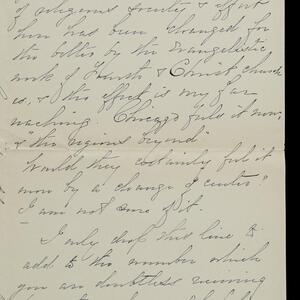 of religious society & effort
here has been changed for
the better by the evangelistic
work of & Christ church
es, & the effect is very far
reaching. Chicago feels it now,
& "the regions beyond"
Would they certainly feel it
more by a change of "center"?
I am not sure of it.
I only drop this line to
add to the number which
you are doubtless receiving